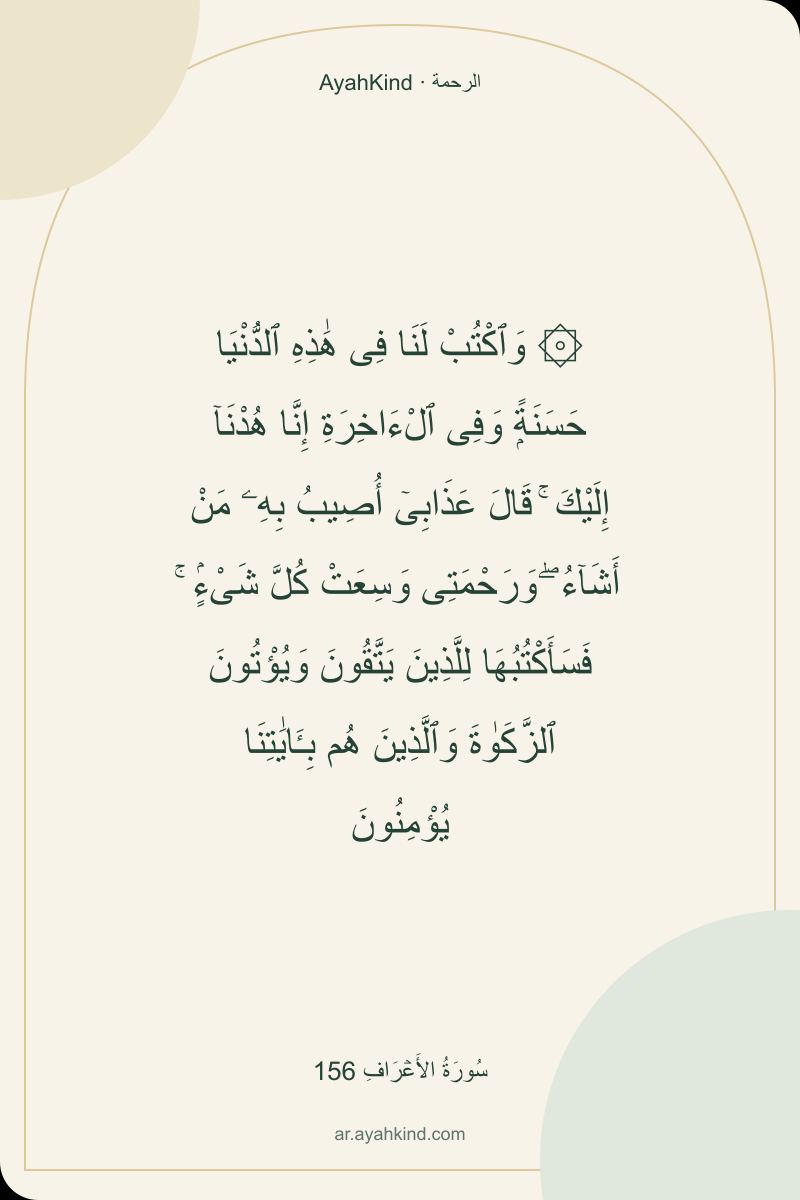 AyahKind · الرحمة
۞ وَٱكْتُبْ لَنَا فِى هَٰذِهِ ٱلدُّنْيَا
حَسَنَةًۭ وَفِى ٱلْءَاخِرَةِ إِنَّا هُدْنَآ
إِلَيْكَ ۚ قَالَ عَذَابِىٓ أُصِيبُ بِهِۦ مَنْ
أَشَآءُ ۖ وَرَحْمَتِى وَسِعَتْ كُلَّ شَىْءٍۢ ۚ
فَسَأَكْتُبُهَا لِلَّذِينَ يَتَّقُونَ وَيُؤْتُونَ
ٱلزَّكَوٰةَ وَٱلَّذِينَ هُم بِـَٔايَٰتِنَا
يُؤْمِنُونَ
سُورَةُ الأَعۡرَافِ 156
ar.ayahkind.com